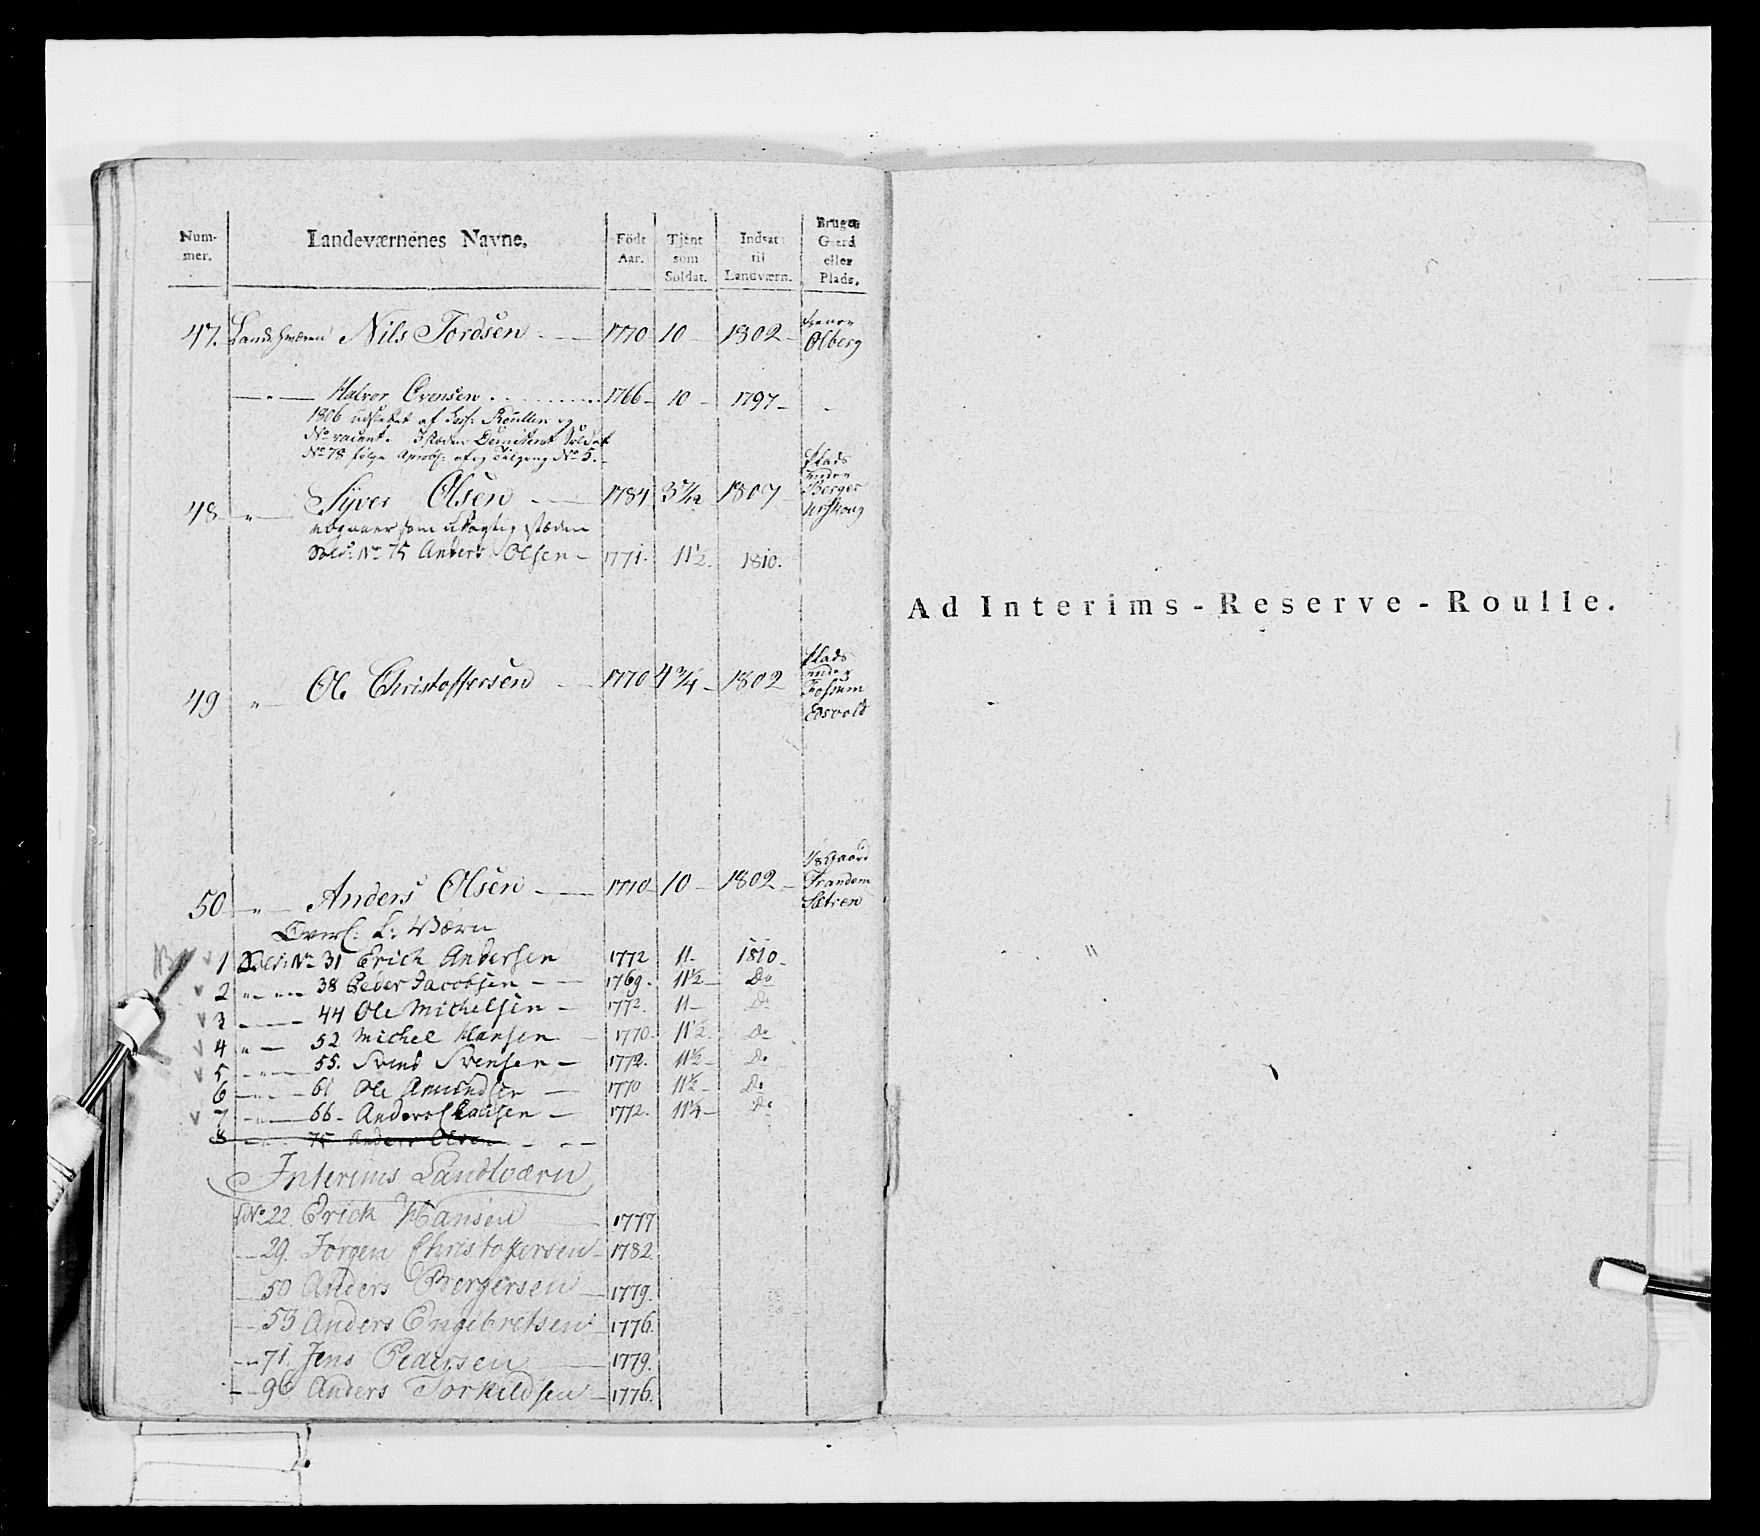 Num-mer. Landeværnenes Navne. Födt Aar. Tjent som Soldat. Indsat til Landværn. Bruger Gaard eller Plads.
47. Landeværn Nils Tordsen 1770 10 1802 Olberg
Halvor Evensen 1766 10 1797
1806 udslettet af Roullen og
No vacant. Demitteret Soldat
No 78 følge Aprob: Tilgang No 5.
48 Syver Olsen 1784 3 1807 Plads under Berger
som Sold: No 75 Anders Olsen 1771. 11½ 1810.
49 Ole Christoffersen 1770 4¾ 1802 Plads under Fossum Edsvold
50 Anders Olsen 1770 10 1802 1/8 Gaard Trandem Sætren
Overc: L: Værn
1 Sold: No 31 Erich Andersen 1772 11 1810
2 38 Peder Jacobsen 1769. 11½ Do
3 44 Ole Michelsen 1772. 11 Do
4 52 Michel Hansen 1770. 11½ Do
5 55. Svend Svensen 1772. 11½ Do
6 61 Ole Amundsen 1770 11½ Do
7 66 Anders Clausen 1772. 11½ Do
8 75 Anders Olsen
Interims Landværn
No 22. Erich Hansen 1777
29. Jørgen Christoffersen 1782.
50 Anders Bergersen 1779.
53 Anders Engebretsen 1776.
71. Jens Pedersen 1779.
96 Anders Torkildsen 1776.
Ad Interims-Reserve-Roulle.